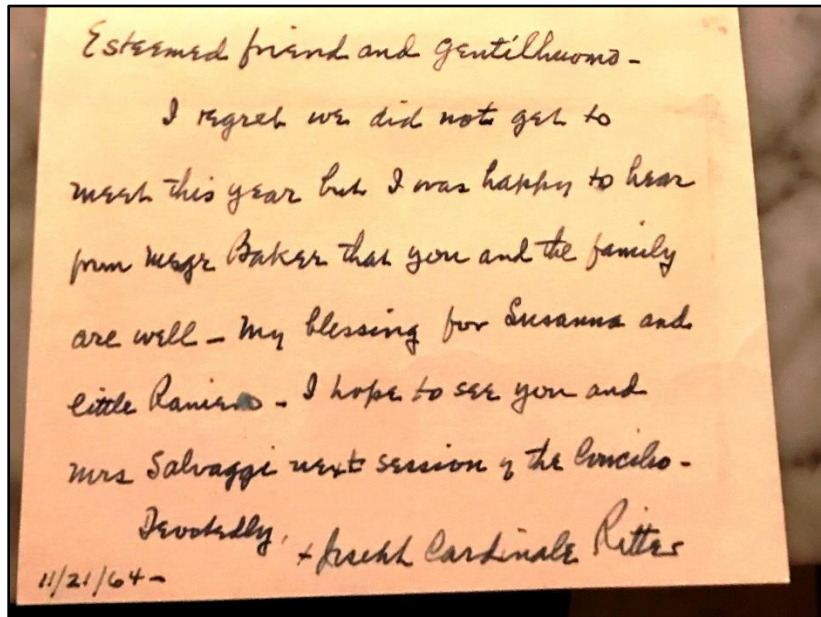 Esteemed friend and Gentilhuomo -
I regret we did not get to
meet this year but I was happy to hear
from Msgr Baker that you and the family
are well - My blessing for Susanna and
little Raniero - I hope to see you and
Mrs Salvaggi next session of the Concilio -
Devotedly,
+ Joseph Cardinale Ritter
11/21/64 -